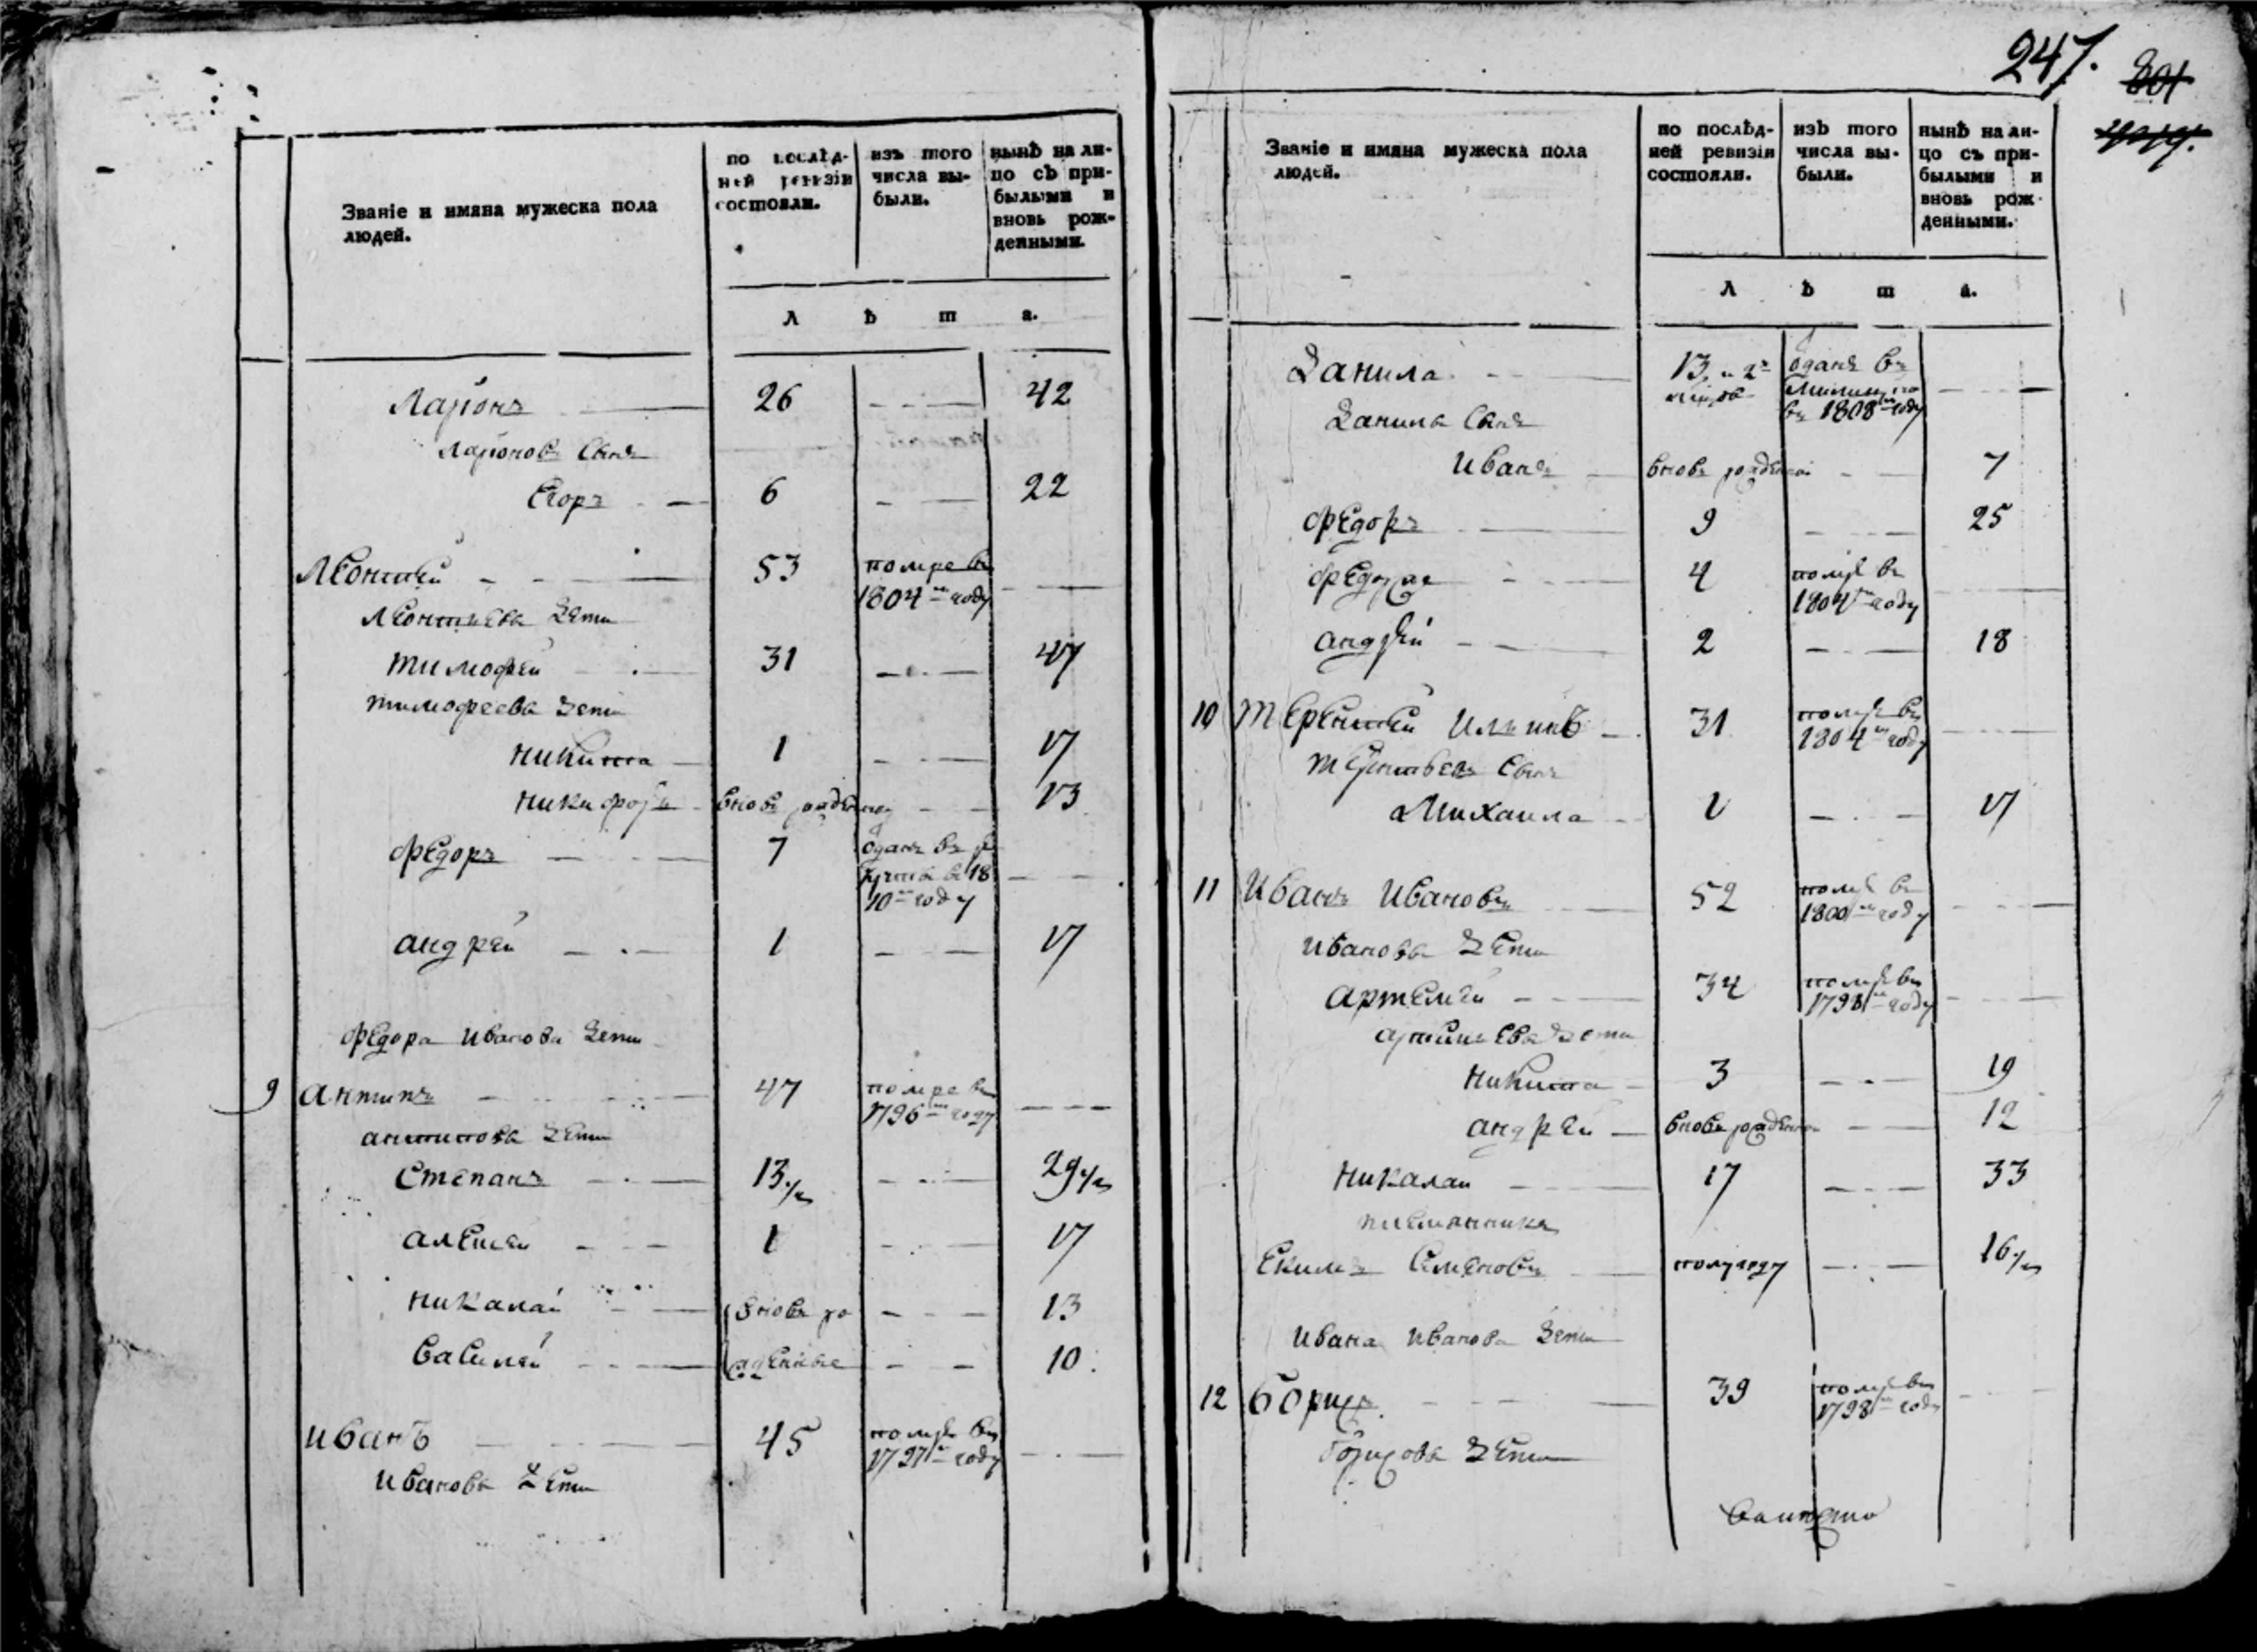 247.
801
Званіе и имяна мужеска пола людей.
по послѣдней ревизіи состояли.
изъ того числа выбыли.
нынѣ на лицо съ прибылыми и вновь рожденными.
л ѣ т а.
Ларіонъ 26 42
Ларіоновъ Сынъ
Егоръ 6 22
Леонтей 53 помре въ 1804м году
Леонтьева Дети
тимофей 31 47
тимофеева Дети
никита 1 17
никифоръ вновь рожденной 13
Федоръ 7 Отданъ въ рекруты въ 1810м году
андрей 1 17
Федора Иванова Дети
9 антипъ 47 помре въ 1796м году
антипова Дети
Степанъ 13 1/2 29 1/2
алексей 1 17
никалай вновь ро 13
Василей жденные 10
иванъ 45 помре въ 1797м году
Иванова Дети
Званіе и имяна мужеска пола людей.
по послѣдней ревизіи состояли.
изъ того числа выбыли.
нынѣ на лицо съ прибылыми и вновь рожденными.
л ѣ т а.
Данила 13 и 2х отданъ въ Милицию въ 1808м году
Данила Сынъ
Иванъ вновь рожденной 7
Федоръ 9 25
Федоръ же 4 помре въ 1804м году
андрей 2 18
10 Терентей Ильинъ 31 помре въ 1804м году
Терентьевъ Сынъ
Михаила 1 17
11 Иванъ Ивановъ 52 помре въ 1800м году
Иванова Дети
Артемей 34 помре въ 1798м году
артемьева дети
никита 3 19
андрей вновь рожденной 12
никалай 17 33
племянникъ
Екимъ Семеновъ полугоду 16 1/2
Ивана Иванова Дети
12 Борисъ 39 помре въ 1798м году
Борисова Дети